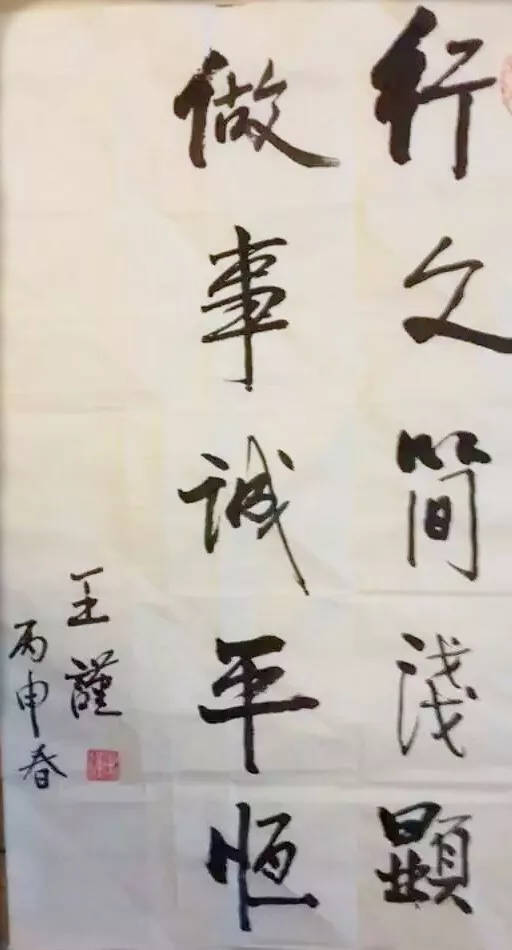 行文简淺顯
做事誠平恒
王謹
丙申春